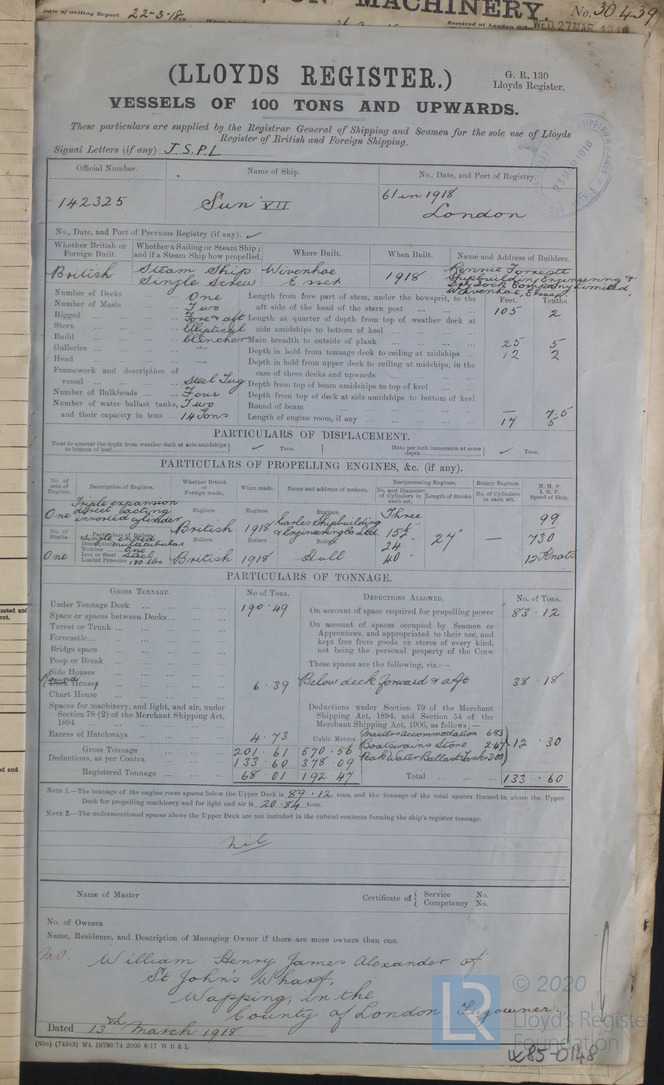 Date of writing Report 22-3-18.
ON MACHINERY.
No. 30439
Received at London Office WED 27 MAR 1918
(LLOYDS REGISTER.)
G. R. 130
Lloyds Register.
VESSELS OF 100 TONS AND UPWARDS.
These particulars are supplied by the Registrar General of Shipping and Seamen for the sole use of Lloyds
Register of British and Foreign Shipping.
Signal Letters (if any) J.S.P.L
Official Number. Name of Ship. No., Date, and Port of Registry.
142325 Sun VII 61 in 1918
London
No., Date, and Port of Previous Registry (if any). ✓
Whether British or Foreign Built. Whether a Sailing or Steam Ship; and if a Steam Ship how propelled. Where Built. When Built. Name and Address of Builders.
British Steam Ship Single Screw Wivenhoe Essex 1918 Rennie Forrestt Shipbuilding Engineering & Dry Dock Company Limited, Wivenhoe, Essex.
Feet. Tenths.
Number of Decks One
Number of Masts Two
Rigged Fore & aft
Stern Elliptical
Build Clencher
Galleries —
Head —
Framework and description of vessel Steel Tug
Number of Bulkheads Four
Number of water ballast tanks, Two
and their capacity in tons 14 Tons
Length from fore part of stem, under the bowsprit, to the aft side of the head of the stern post 105 2
Length at quarter of depth from top of weather deck at side amidships to bottom of keel
Main breadth to outside of plank 25 5
Depth in hold from tonnage deck to ceiling at midships 12 2
Depth in hold from upper deck to ceiling at midships, in the case of three decks and upwards
Depth from top of beam amidships to top of keel
Depth from top of deck at side amidships to bottom of keel
Round of beam — 7.5
Length of engine room, if any 17 5
PARTICULARS OF DISPLACEMENT.
Total to quarter the depth from weather deck at side amidships to bottom of keel ✓ Tons. Ditto per inch immersion at same depth ✓ Tons.
PARTICULARS OF PROPELLING ENGINES, &c. (if any).
No. of sets of Engines. Description of Engines. Whether British or Foreign made. When made. Name and address of makers. Reciprocating Engines. Rotary Engines. N.H.P. I.H.P. Speed of Ship.
No. and Diameter of Cylinders in each set. Length of Stroke. No. of Cylinders in each set.
One Triple expansion direct acting inverted cylinder
Engines. British Engines. 1918 Engines. Earles Shipbuilding & Engineering Co Ltd. Three 15½" 24" 40" 27" — 99
730
12 Knots
No. of Shafts. Particulars of Boilers.
One Description single ended multitubular
Number One
Iron or Steel Steel
Loaded Pressure 180 lbs
Boilers British Boilers 1918 Boilers Hull
PARTICULARS OF TONNAGE.
GROSS TONNAGE. No of Tons. DEDUCTIONS ALLOWED. No. of Tons.
Under Tonnage Deck 190.49
Space or spaces between Decks
Turret or Trunk
Forecastle
Bridge space
Poop or Break
Side Houses
Round Houses 6.39
Chart House
Spaces for machinery, and light, and air, under Section 78 (2) of the Merchant Shipping Act, 1894
Excess of Hatchways 4.73
Cubic Metres
Gross Tonnage 201.61 570.56
Deductions, as per Contra 133.60 378.09
Registered Tonnage 68.01 192.47
On account of space required for propelling power 83.12
On account of spaces occupied by Seamen or Apprentices, and appropriated to their use, and kept free from goods or stores of every kind, not being the personal property of the Crew
These spaces are the following, viz.:—
Below deck forward & aft 38.18
Deductions under Section 79 of the Merchant Shipping Act, 1894, and Section 54 of the Merchant Shipping Act, 1906, as follows:—
Masters accommodation 6.83
Boatswains Store 2.47
Peak Water Ballast Tank 3.00
12.30
Total 133.60
NOTE 1.—The tonnage of the engine room spaces below the Upper Deck is 89.12 tons, and the tonnage of the total spaces framed in above the Upper
Deck for propelling machinery and for light and air is 20.84 tons.
NOTE 2.—The undermentioned spaces above the Upper Deck are not included in the cubical contents forming the ship's register tonnage.
Nil
Name of Master Certificate of { Service No.
Competency No.
No. of Owners
Name, Residence, and Description of Managing Owner if there are more owners than one.
William Henry James Alexander of
St John's Wharf,
Wapping, in the
County of London Tugowner.
Dated 13th March 1918
© 2020
LR
Lloyd's Register
Foundation
W85-0148